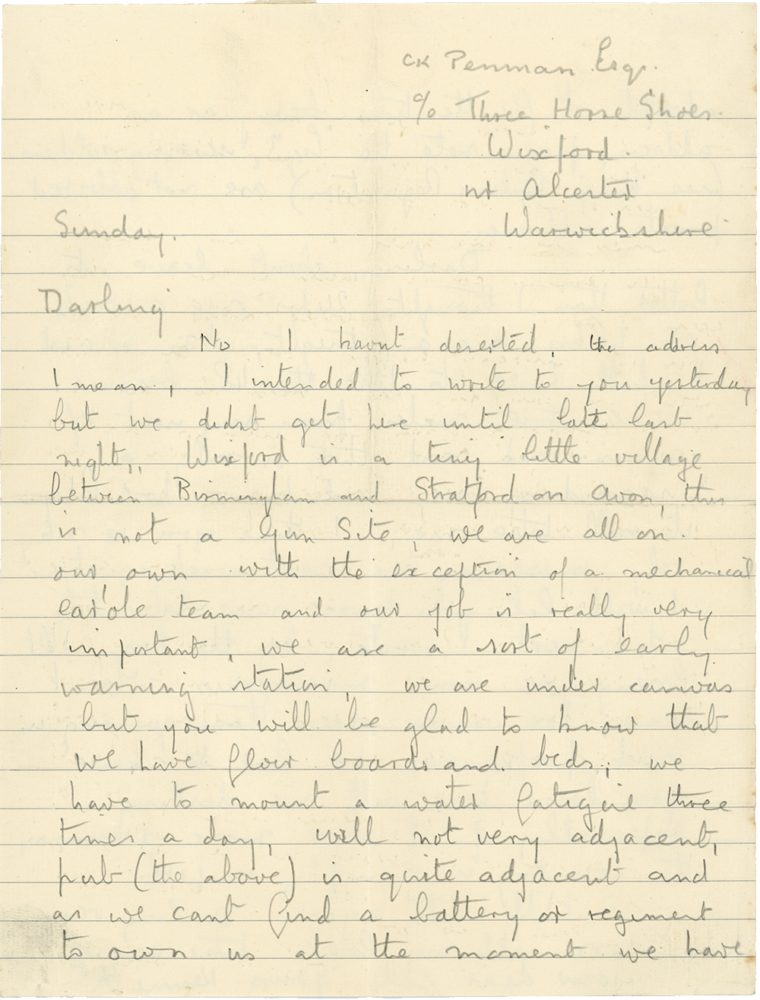 CK Penman Esq.
c/o Three Horse Shoes.
Wixford.
nr Alcester
Warwickshire
Sunday.
Darling
No I havnt deserted, the address
I mean, I intended to write to you yesterday
but we didnt get here until late last
night,, Wixford is a tiny little village
between Birmingham and Stratford on Avon, this
is not a Gun Site, we are all on.
our own with the exception of a mechanical
ear'ole team and our job is really very
important, we are a sort of early
warning station, we are under canvas
but you will be glad to know that
we have floor boards and beds; we
have to mount a water fatigue three
times a day, well not very adjacent,
pub (the above) is quite adjacent and
as we cant find a battery or regiment
to own us at the moment we have